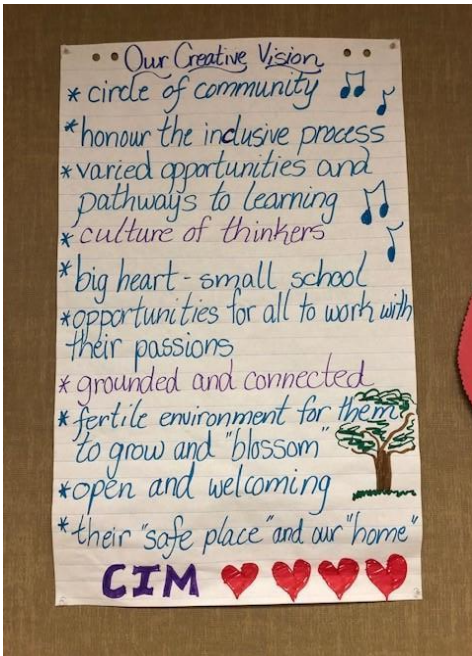 Our Creative Vision
* circle of community
* honour the inclusive process
* varied opportunities and
pathways to learning
* culture of thinkers
* big heart - small school
* opportunities for all to work with
their passions
* grounded and connected
* fertile environment for them
to grow and "blossom"
* open and welcoming
* their "safe place" and our "home"
CIM